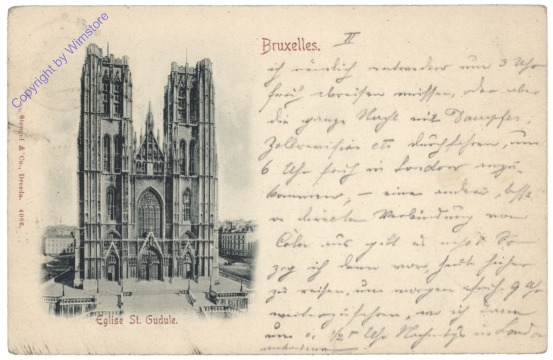 Copyright by Wimstore
Bruxelles.
II
ich nämlich entweder um 3 Uhr
früh abreisen müssen, oder aber
die ganze Nacht mit Dampfer,
Zollrevision etc. durchfahren, um
6 Uhr früh in London anzu-
kommen, – eine andere,
direkten Verbindung von
Cöln aus gibt es nicht. So
zog ich denn vor, heute früher
zu reisen, um morgen früh 9 Uhr
weiterzufahren, wo ich dann
um 1/2 5 Uhr Nachmttgs in London
Stengel & Co., Dresda. 4086.
Eglise St. Gudule.